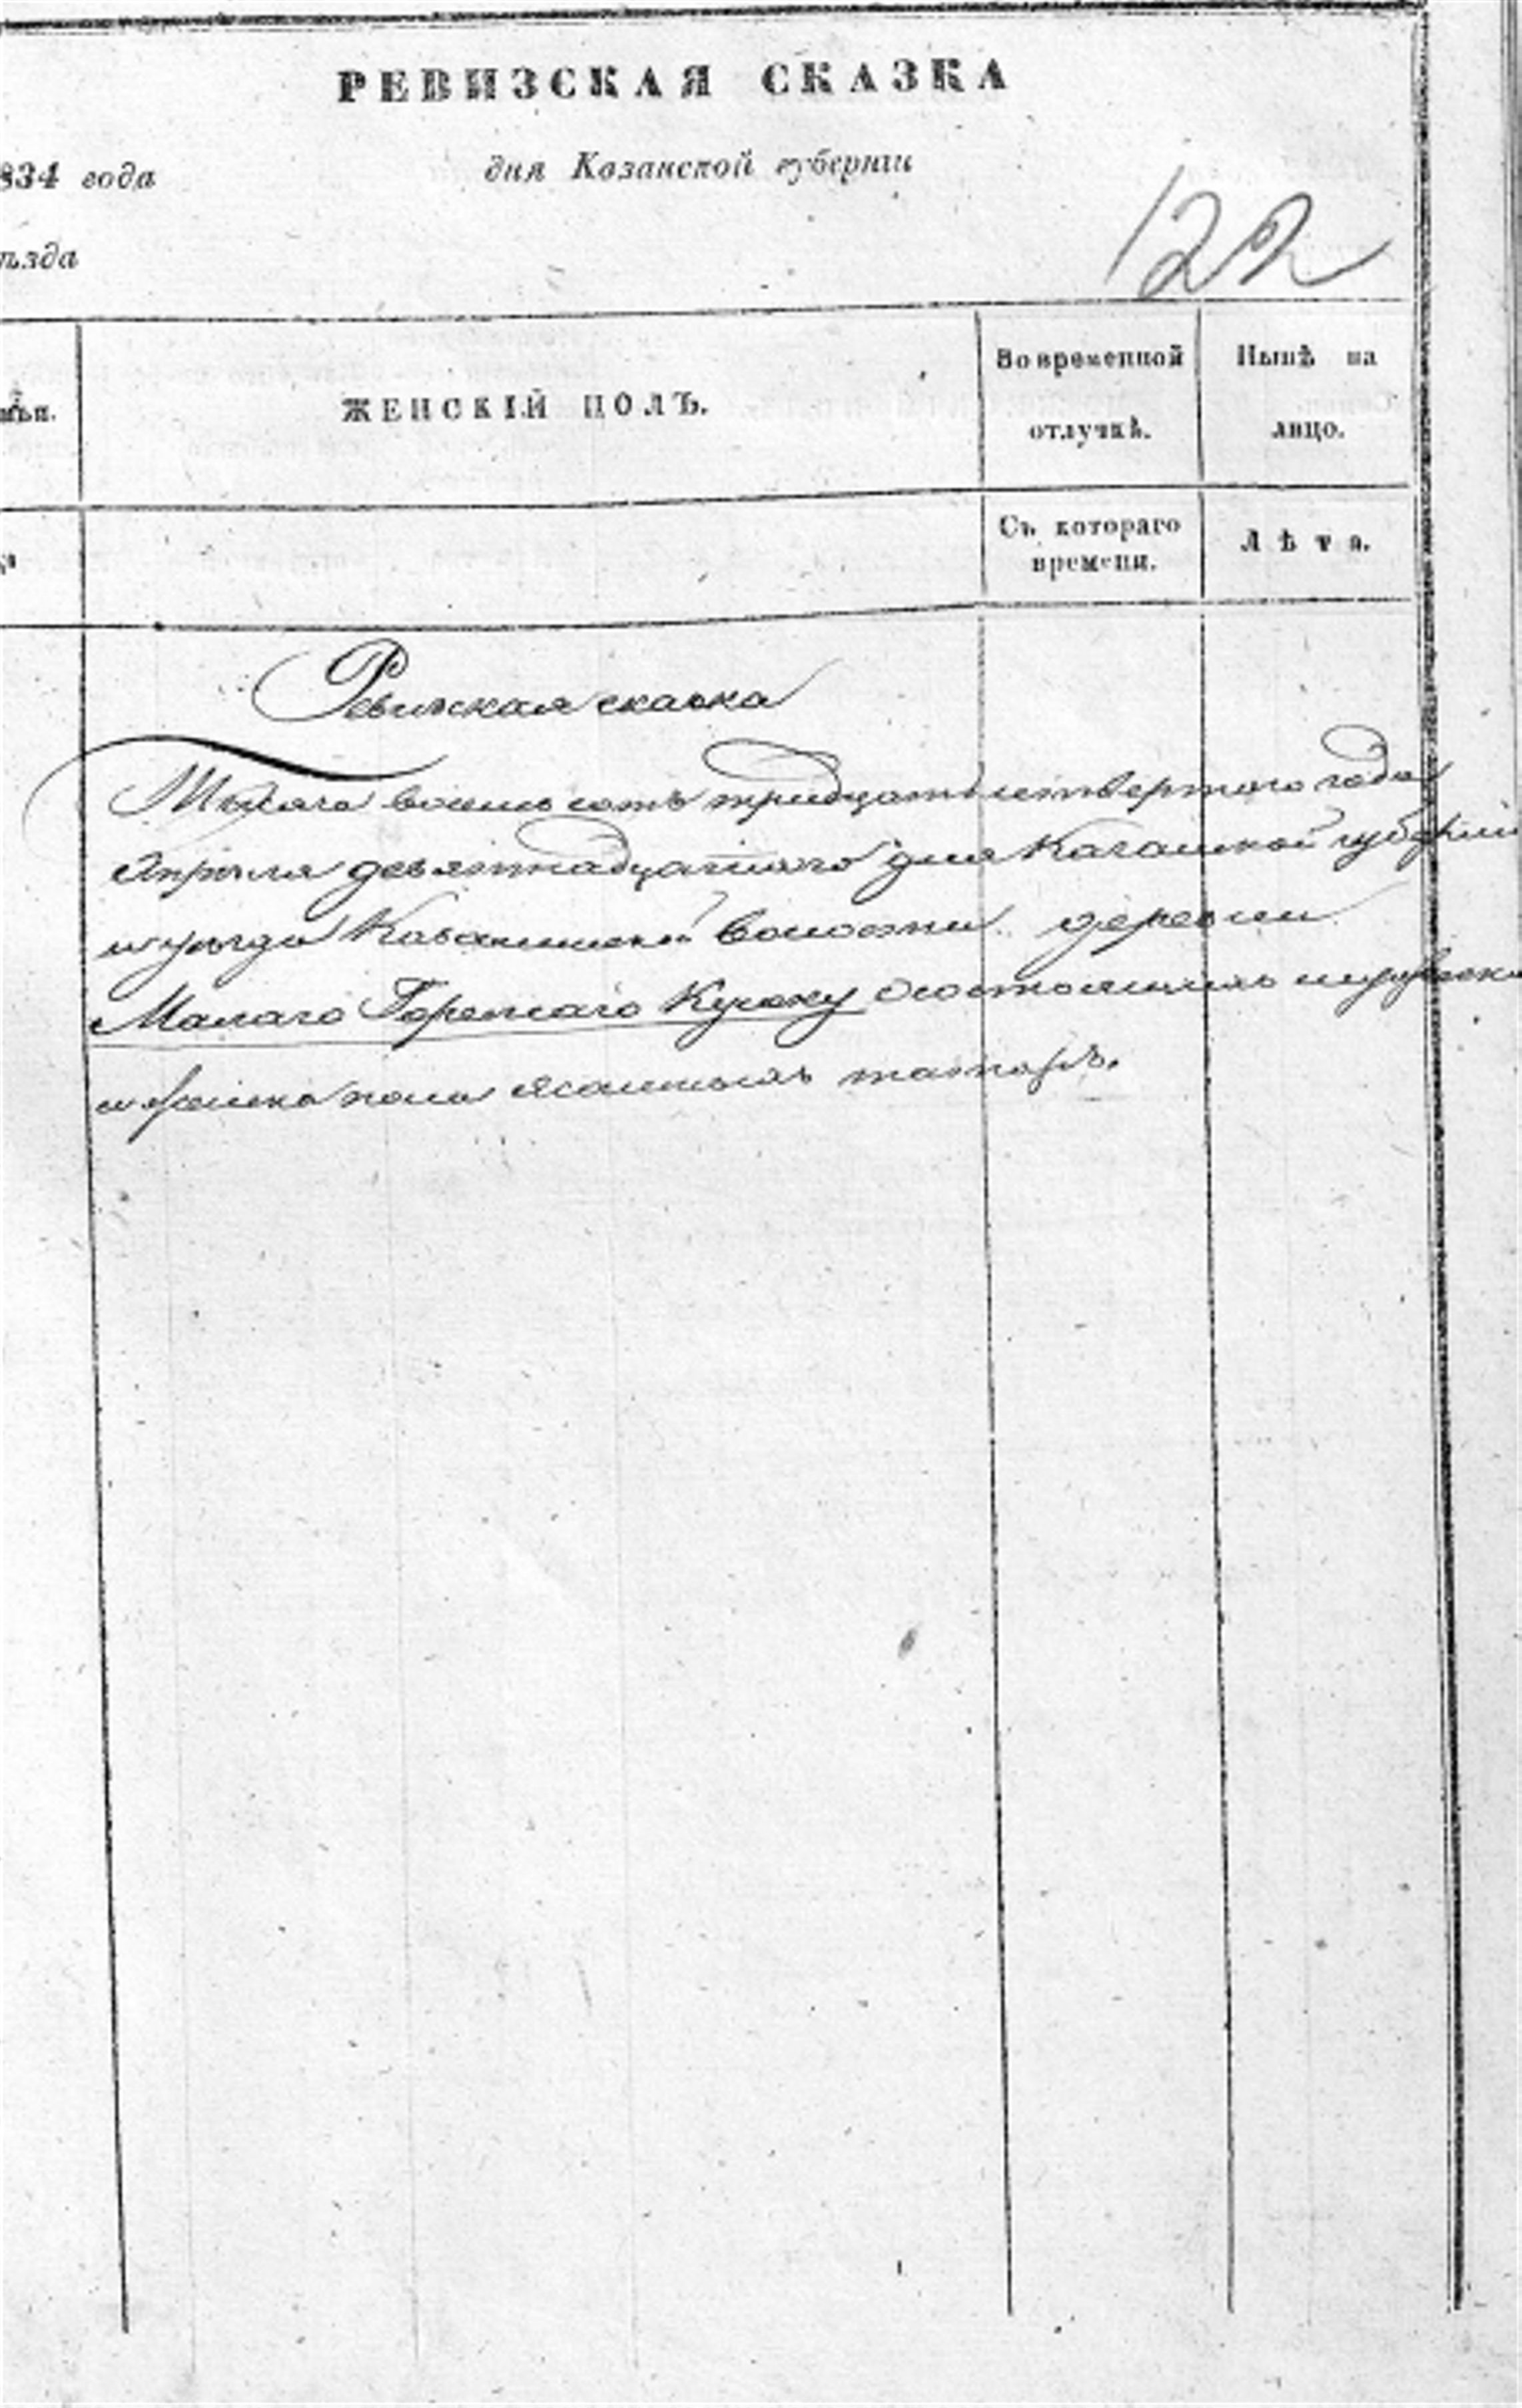 РЕВИЗСКАЯ СКАЗКА
834 года дня Казанской губернии
ѣзда
122
ЖЕНСКІЙ ПОЛЪ.
Во временной отлучкѣ.
Нынѣ на лицо.
Съ котораго времени.
Лѣта.
Ревижская сказка
Тысяча восемь сотъ тридцать четвертого года
Апреля девятнадцатого дня Казанской губернии
и уезда Кавалинской волости деревни
Малаго состоящихъ мужеска
и женска пола Ясашныхъ татаръ.